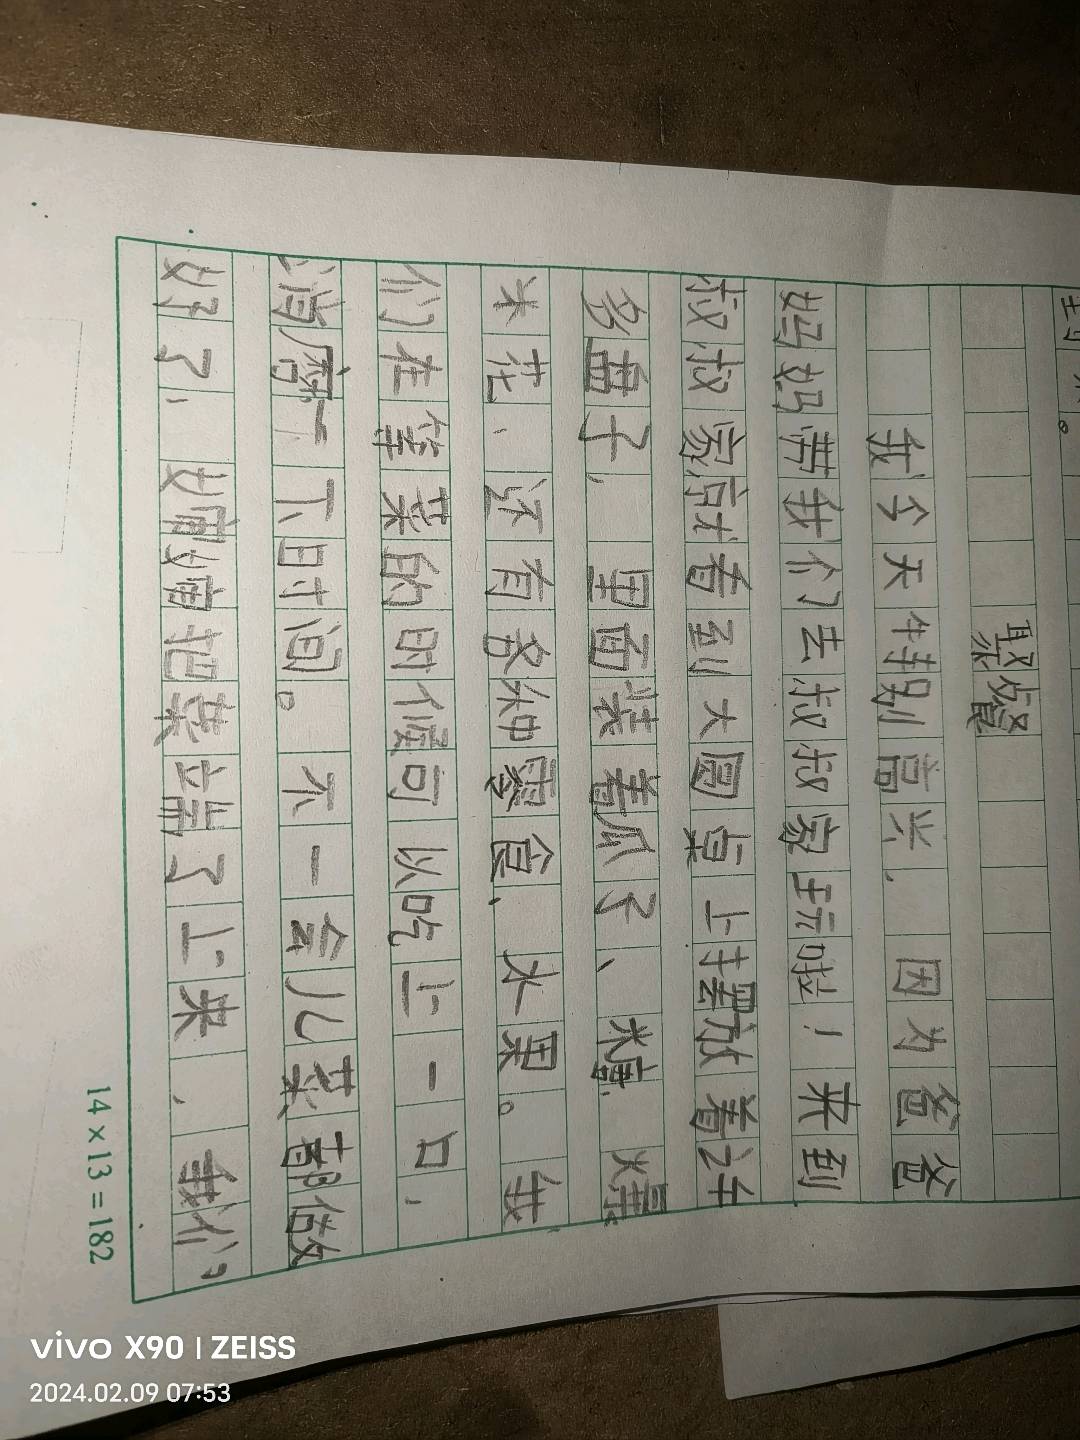 聚餐
我今天特别高兴，因为爸爸
妈妈带我们去叔叔家玩啦！来到
叔叔家就看到大圆桌上摆放着许
多盘子，里面装着瓜子、糖、爆
米花、还有各种零食、水果。我
们在等菜的时候可以吃上一口，
消磨一下时间。不一会儿菜都做
好了，婶婶把菜端了上来，我们
14×13=182
vivo X90 | ZEISS
2024.02.09 07:53